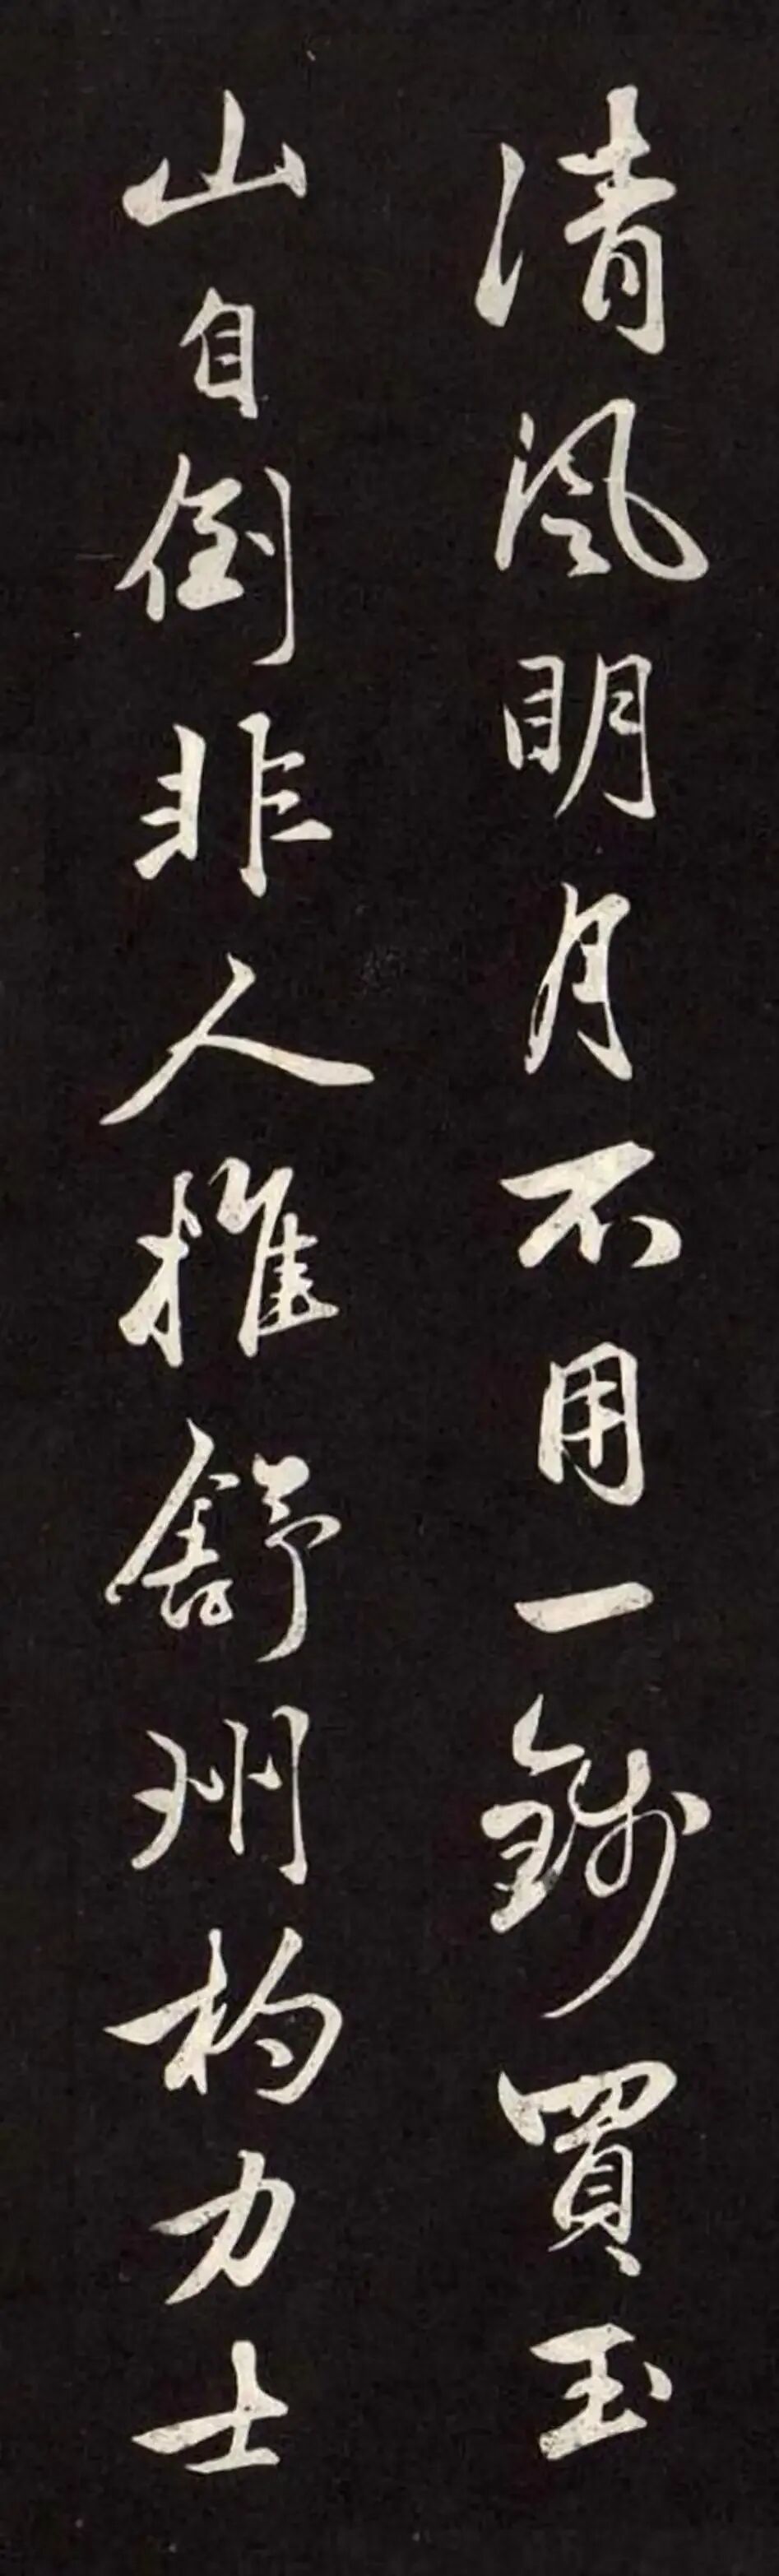 清風明月不用一錢買玉
山自倒非人推舒州杓力士